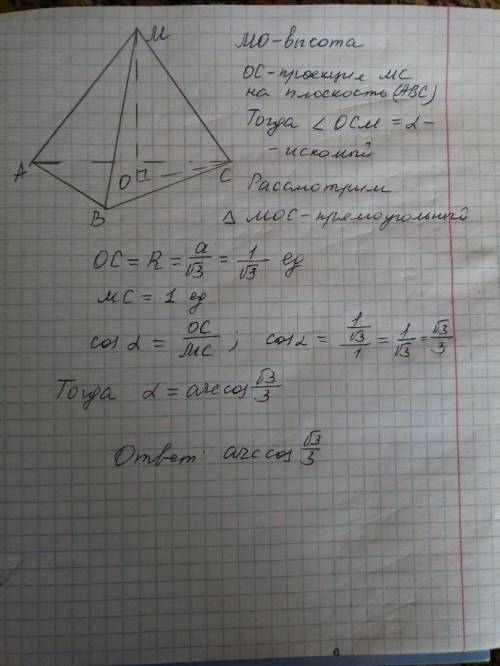 M
A
B
O
C
MO-высота
OC-проекция MC
на плоскость (ABC)
Тогда ∠OCM = α -
- искомый
Рассмотрим
Δ MOC - прямоугольный
OC = R = a/√3 = 1/√3 ед
MC = 1 ед
cos α = OC/MC ; cos α = (1/√3)/1 = 1/√3 = √3/3
Тогда α = arccos √3/3
Ответ: arccos √3/3